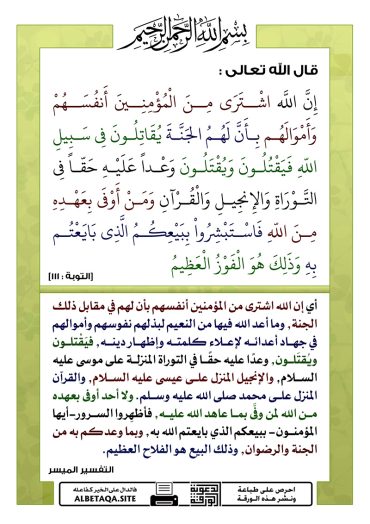 بسم الله الرحمن الرحيم
قال الله تعالى :
إِنَّ اللَّهَ اشْتَرَى مِنَ الْمُؤْمِنِينَ أَنفُسَهُمْ
وَأَمْوَالَهُم بِأَنَّ لَهُمُ الْجَنَّةَ يُقَاتِلُونَ فِي سَبِيلِ
اللَّهِ فَيَقْتُلُونَ وَيُقْتَلُونَ وَعْداً عَلَيْهِ حَقّاً فِي
التَّوْرَاةِ وَالإِنجِيلِ وَالْقُرْآنِ وَمَنْ أَوْفَى بِعَهْدِهِ
مِنَ اللَّهِ فَاسْتَبْشِرُواْ بِبَيْعِكُمُ الَّذِي بَايَعْتُم
بِهِ وَذَلِكَ هُوَ الْفَوْزُ الْعَظِيمُ
[التوبة : ١١١]
أي إن الله اشترى من المؤمنين أنفسهم بأن لهم في مقابل ذلك
الجنة, وما أعد الله فيها من النعيم لبذلهم نفوسهم وأموالهم
في جهاد أعدائه لإعلاء كلمته وإظهار دينه, فيَقْتلون
ويُقتَلون, وعدًا عليه حقًا في التوراة المنزلة على موسى عليه
السلام, والإنجيل المنزل على عيسى عليه السلام, والقرآن
المنزل على محمد صلى الله عليه وسلم. ولا أحد أوفى بعهده
من الله لمن وفَّى بما عاهد الله عليه, فأظهروا السرور-أيها
المؤمنون- ببيعكم الذي بايعتم الله به, وبما وعدكم به من
الجنة والرضوان, وذلك البيع هو الفلاح العظيم.
التفسير الميسر
احرص على طباعة
ونشر هذه الورقة
الدعوية
الورقة
فالدال على الخير كفاعله
ALBETAQA.SITE